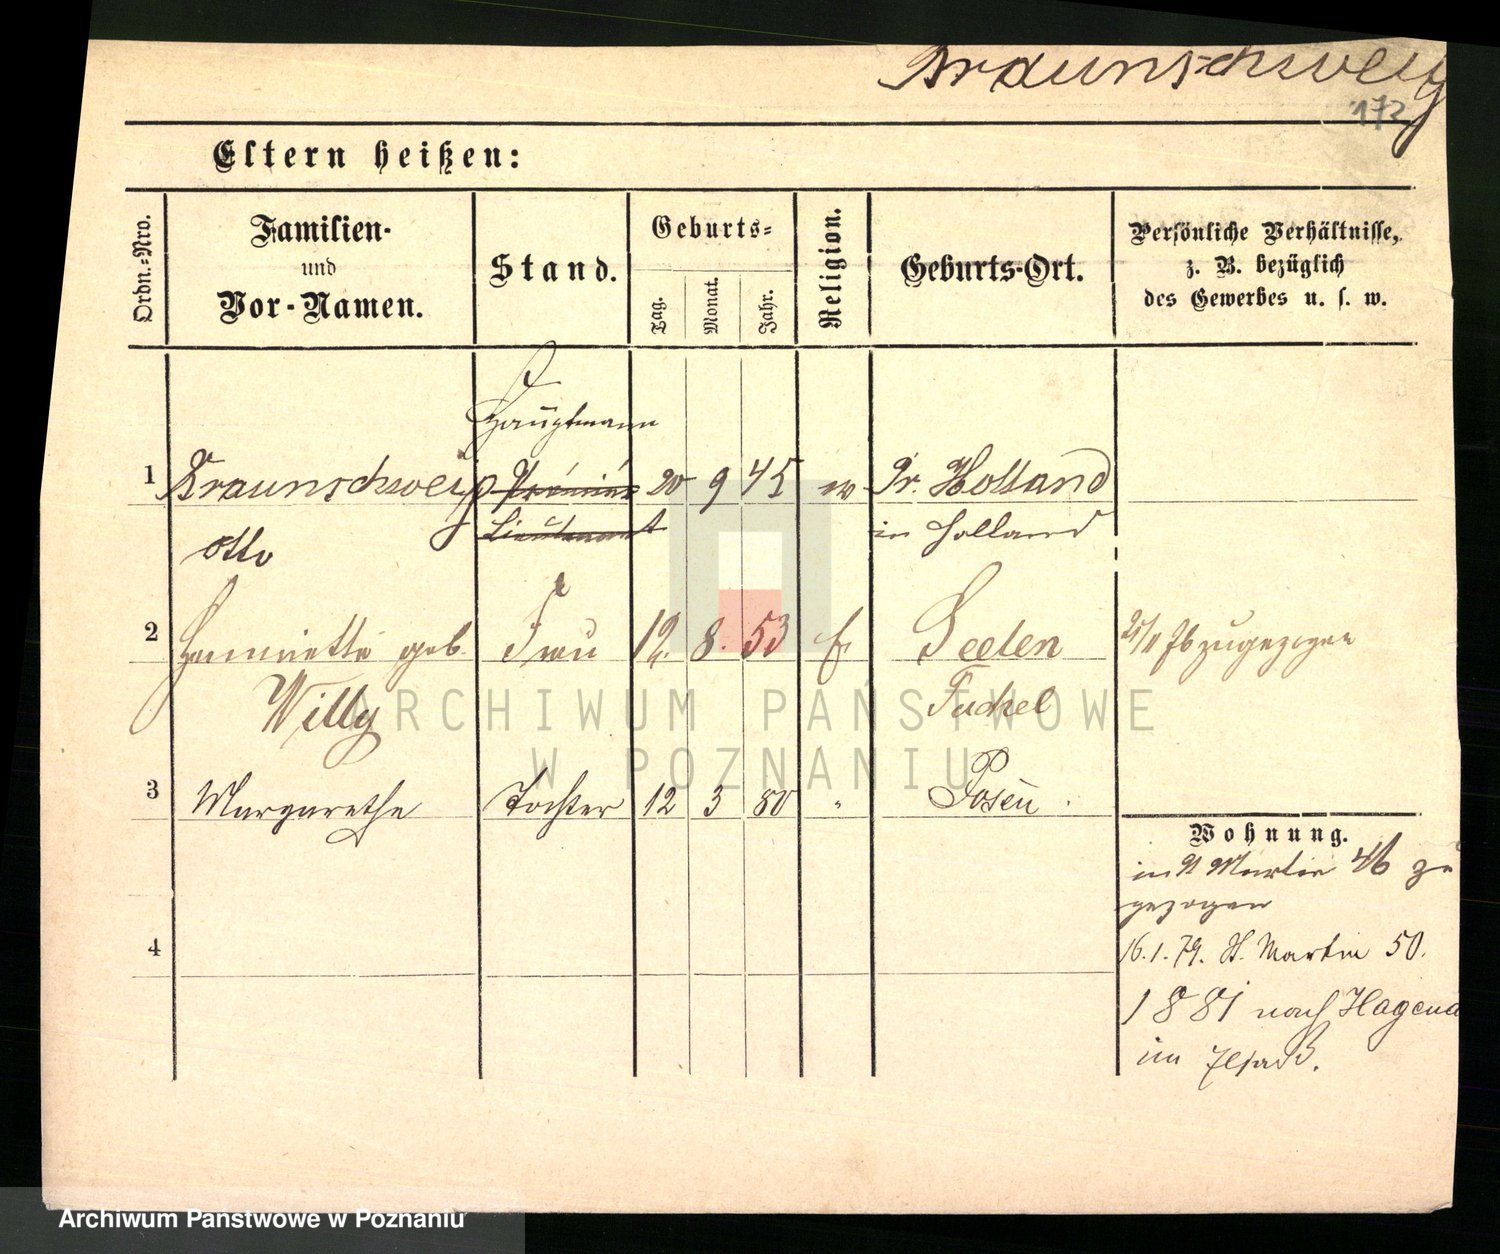 Braunschweig
172
Eltern heißen:
Ordn.=Nro.
Familien-
und
Vor-Namen.
Stand.
Geburts=
Tag.
Monat.
Jahr.
Religion.
Geburts-Ort.
Persönliche Verhältnisse,
z. B. bezüglich
des Gewerbes u. s. w.
Hauptmann
1 Braunschweig Premier 20 9 45 ev Pr. Holland
Lieutenant in Holland
Otto
2 Henriette geb. Frau 12. 8. 53 ev zugezogen
Willy Tuchel
3 Margarethe Tochter 12 3 80 " Posen.
Wohnung.
in St Martin 46 zu
gezogen
4 16.1.79. St. Martin 50.
1881 nach Hagenau
im Elsaß.
ARCHIWUM PAŃSTWOWE
W POZNANIU
Archiwum Państwowe w Poznaniu